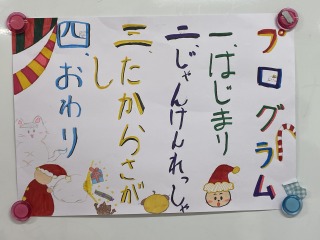 プログラム
一、はじまり
二、じゃんけんれっしゃ
三、たからさが
し
四、おわり